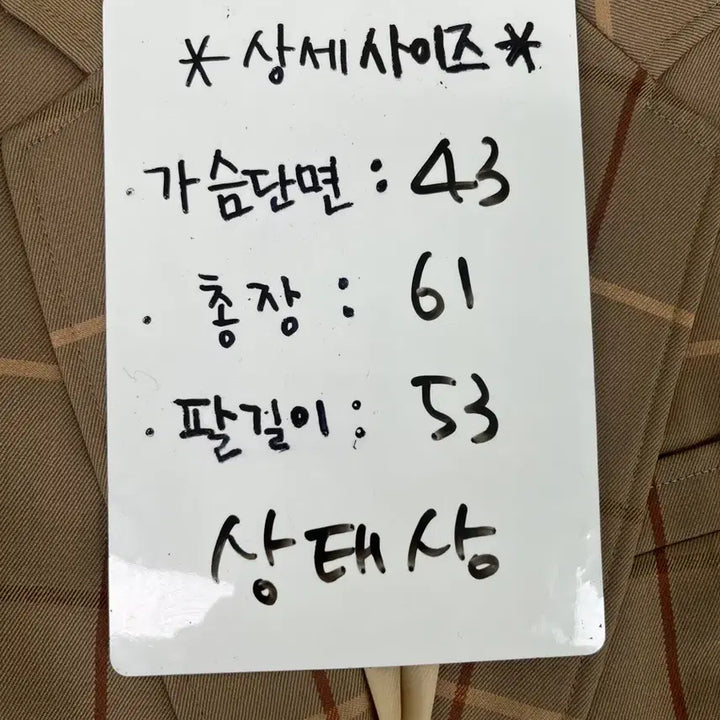 * 상세사이즈 *
· 가슴단면 : 43
· 총장 : 61
· 팔길이 : 53
상태상